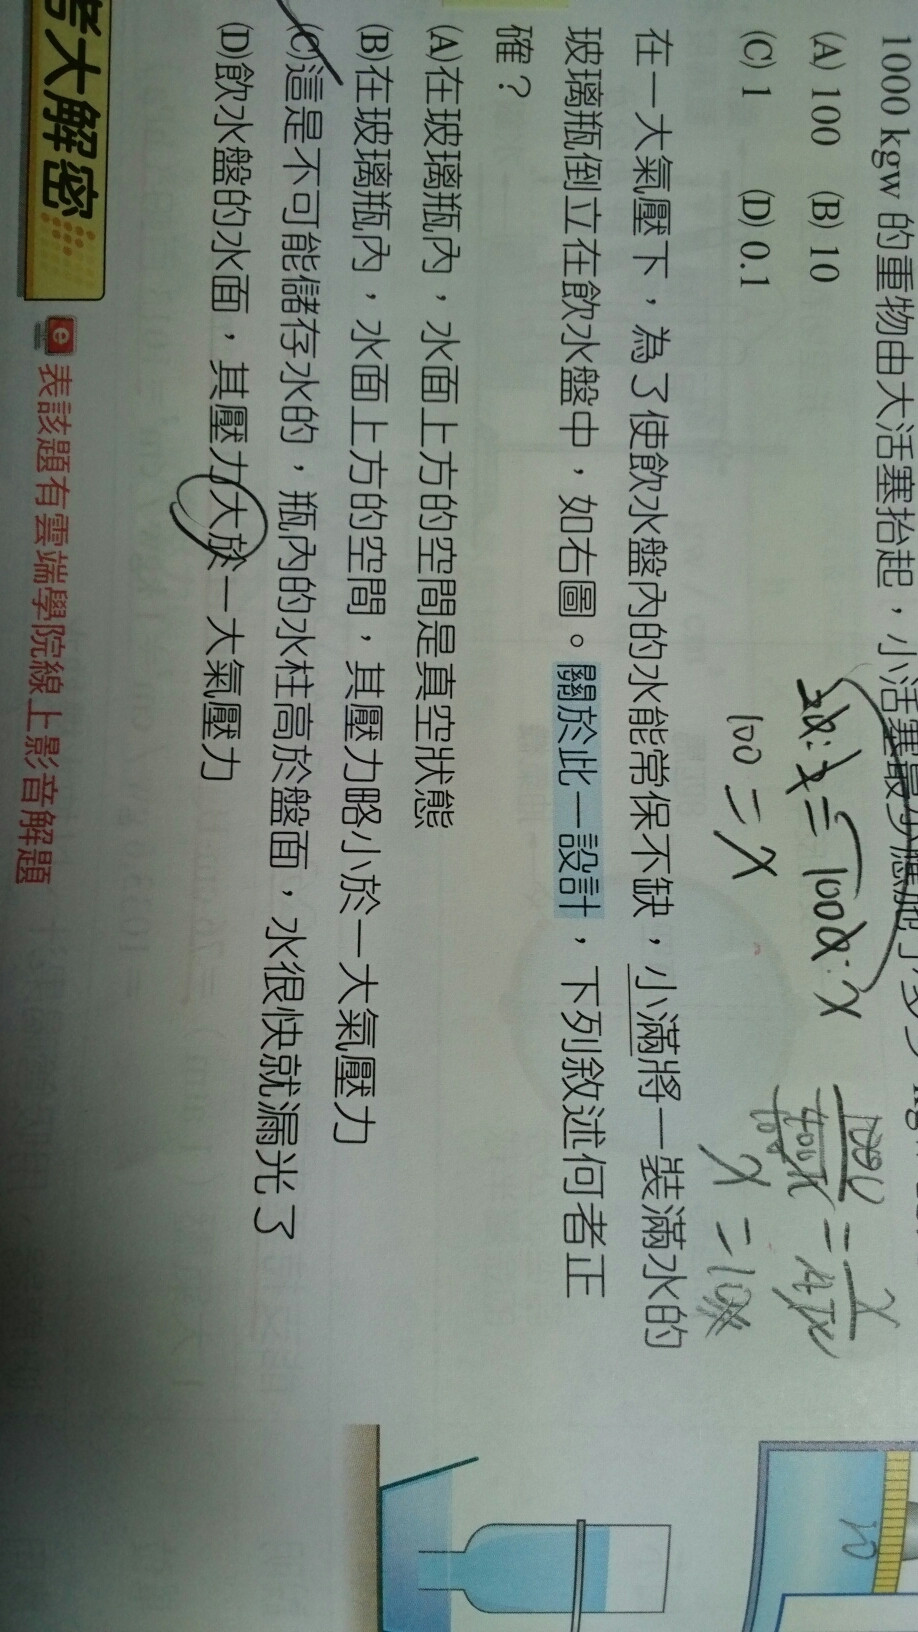 1000 kgw 的重物由大活塞抬起，小活塞最少應施予多少
(A) 100 (B) 10
(C) 1 (D) 0.1
2α:x=100α:x
100=x
x=10
在一大氣壓下，為了使飲水盤內的水能常保不缺，小滿將一裝滿水的
玻璃瓶倒立在飲水盤中，如右圖。關於此一設計，下列敘述何者正
確？
(A)在玻璃瓶內，水面上方的空間是真空狀態
(B)在玻璃瓶內，水面上方的空間，其壓力略小於一大氣壓力
(C)這是不可能儲存水的，瓶內的水柱高於盤面，水很快就漏光了
(D)飲水盤的水面，其壓力大於一大氣壓力
大解密
e 表該題有雲端學院線上影音解題
10